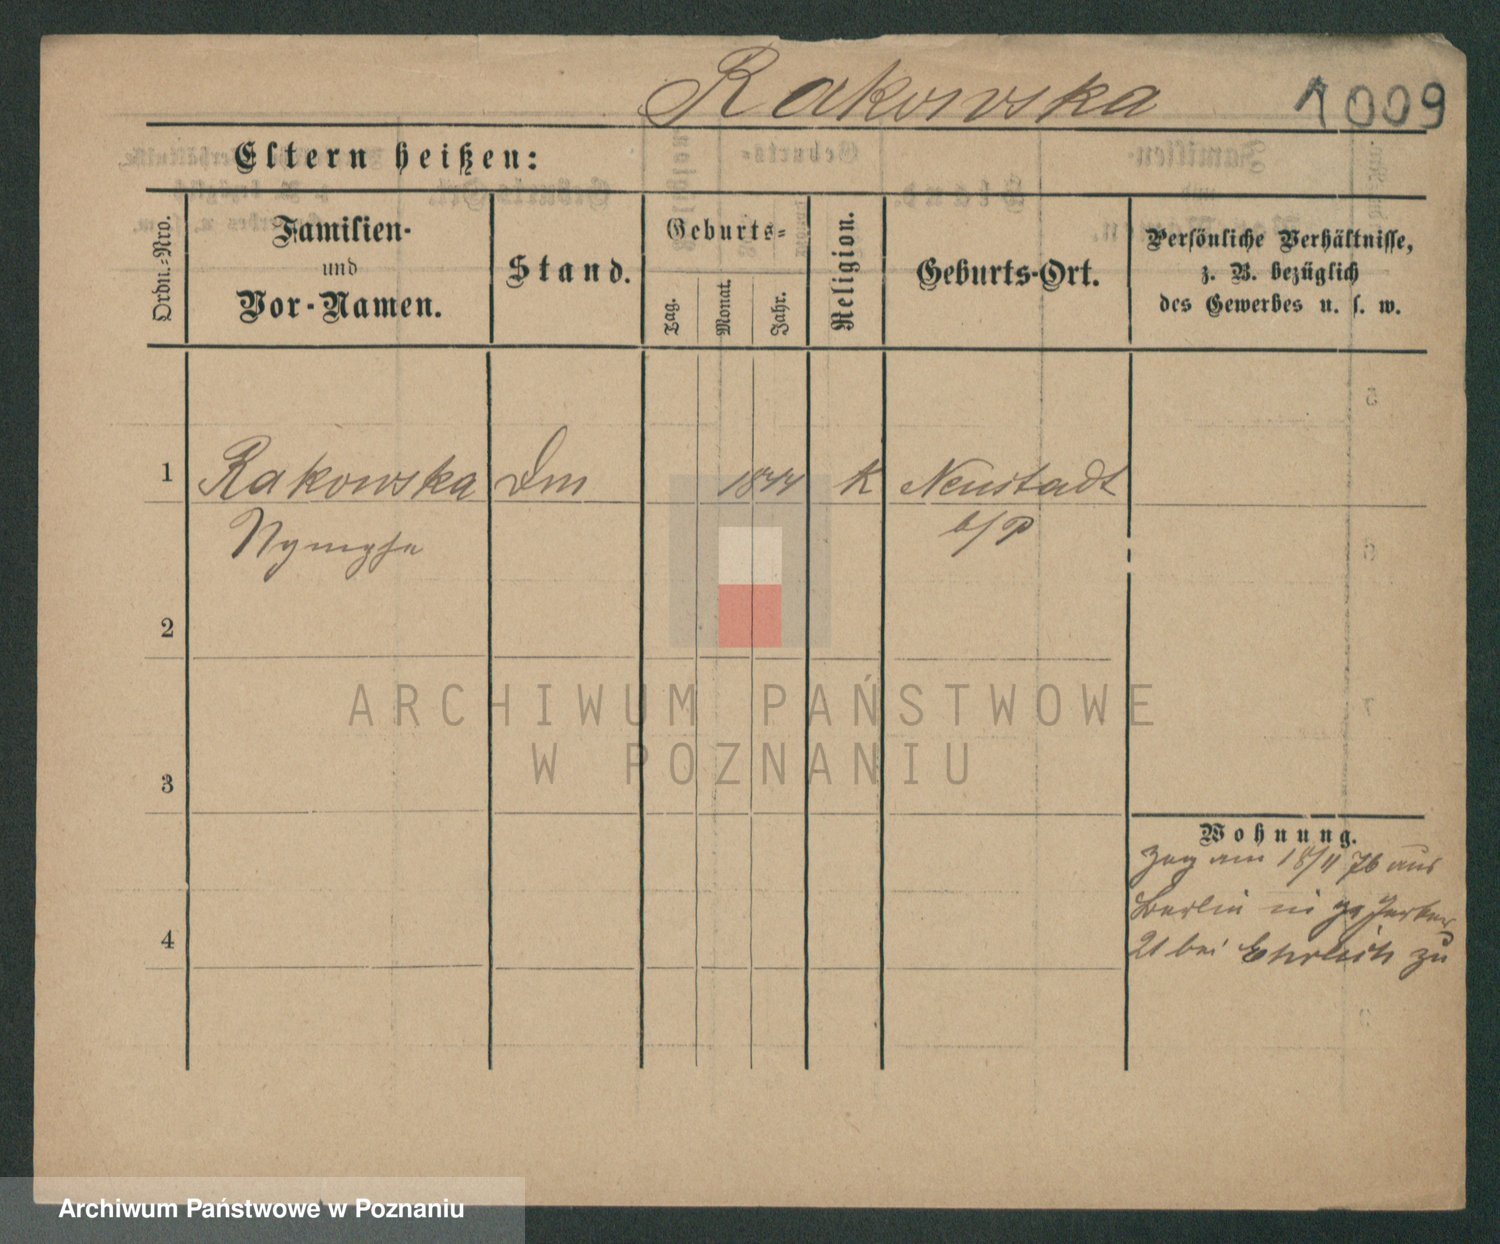 Rakowska
1009
Eltern heißen:
Ordn.-Nro.
Familien-
und
Vor-Namen.
Stand.
Geburts-
Tag.
Monat.
Jahr.
Religion.
Geburts-Ort.
Persönliche Verhältnisse,
z. B. bezüglich
des Gewerbes u. s. w.
1 Rakowska Dm 1844 K Neustadt
Nymphe b/P
2
3
4
Wohnung.
zog am 18/11 76 aus
Berlin in
21 bei Ehrlich zu
ARCHIWUM PAŃSTWOWE
W POZNANIU
Archiwum Państwowe w Poznaniu